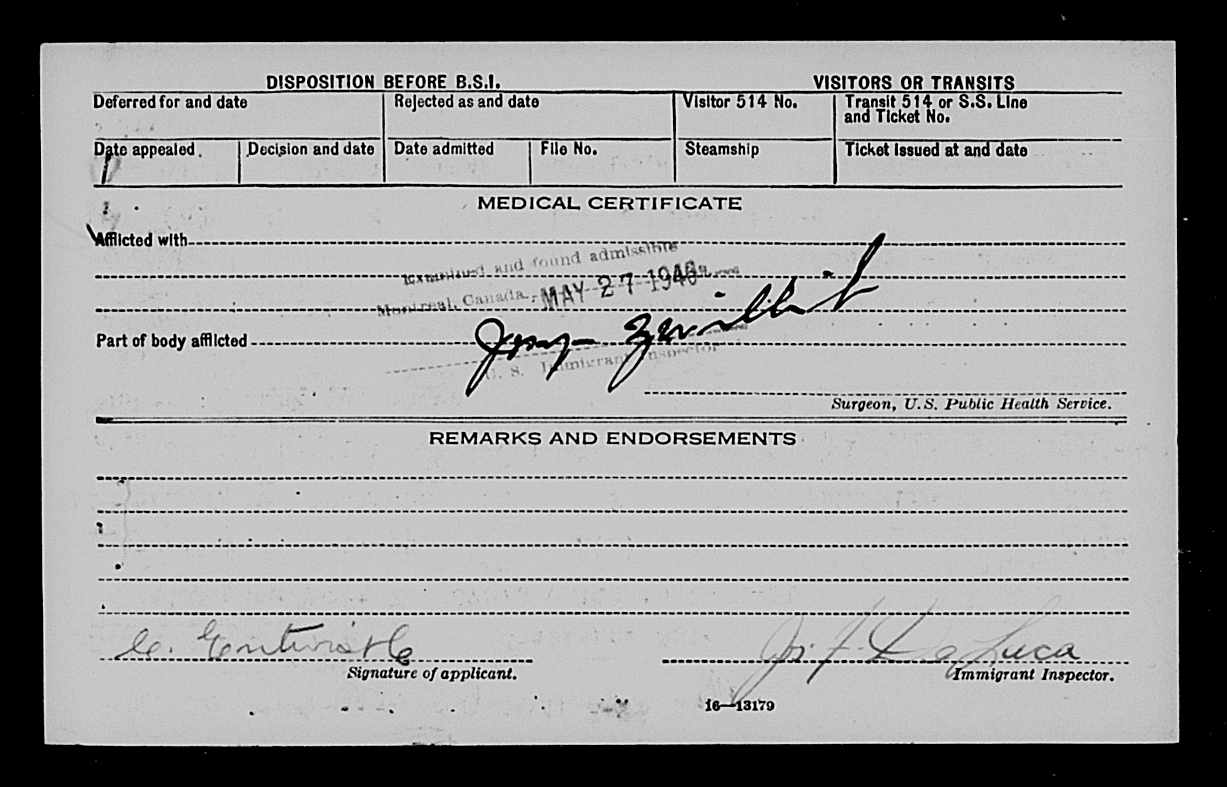 DISPOSITION BEFORE B.S.I. VISITORS OR TRANSITS
Deferred for and date Rejected as and date Visitor 514 No. Transit 514 or S.S. Line
and Ticket No.
Date appealed Decision and date Date admitted File No. Steamship Ticket issued at and date
MEDICAL CERTIFICATE
Afflicted with
Examined and found admissible
Montreal, Canada, MAY 27 1946
Part of body afflicted
U. S. Immigrant Inspector
Surgeon, U.S. Public Health Service.
REMARKS AND ENDORSEMENTS
C. Entwistle De Luca
Signature of applicant. Immigrant Inspector.
16—13179